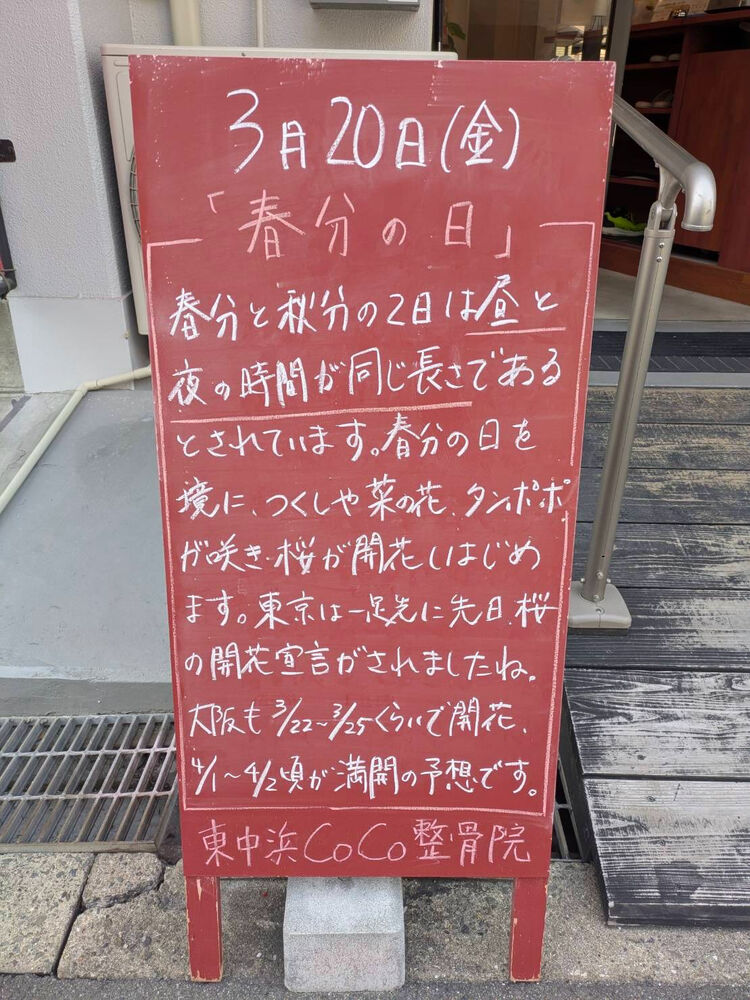 3月20日(金)
「春分の日」
春分と秋分の2日は昼と
夜の時間が同じ長さである
とされています。春分の日を
境に、つくしや菜の花、タンポポ
が咲き、桜が開花しはじめ
ます。東京は一足先に先日、桜
の開花宣言がされましたね。
大阪も3/22~3/25くらいで開花、
4/1~4/2頃が満開の予想です。
東中浜CoCo整骨院